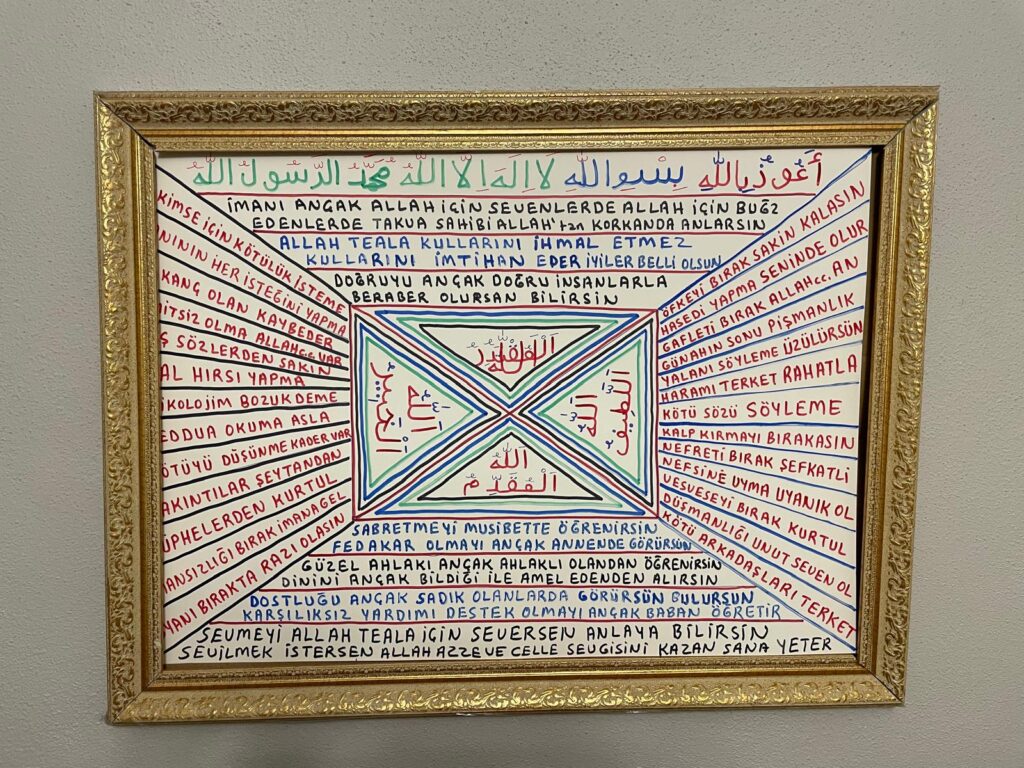 أَعُوذُ بِاللهِ بِسْمِ اللهِ لَا اِلَهَ اِلَّا اللهُ مُحَمَّدُ الرَّسُولُ اللهُ
İMANI ANÇAK ALLAH İÇİN SEVENLERDE ALLAH İÇİN BUĞZ
EDENLERDE TAKVA SAHİBİ ALLAH'tan KORKANDA ANLARSIN
ALLAH TEALA KULLARINI İHMAL ETMEZ
KULLARINI İMTİHAN EDER İYİLER BELLİ OLSUN
DOĞRUYU ANÇAK DOĞRU İNSANLARLA
BERABER OLURSAN BİLİRSİN
KİMSE İÇİN KÖTÜLÜK İSTEME
NININ HER İSTEĞİNİ YAPMA
KANÇ OLAN KAYBEDER
İTSİZ OLMA ALLAHcc VAR
Ş SÖZLERDEN SAKIN
AL HIRSI YAPMA
İKOLOJİM BOZUK DEME
EDDUA OKUMA ASLA
ÖTÜYÜ DÜŞÜNME KADER VAR
AKINTILAR ŞEYTANDAN
UPHELERDEN KURTUL
ANSIZLIĞI BIRAK İMANA GEL
YANI BIRAKTA RAZI OLASIN
اَلْمُقْتَدِرُ
اللهُ
اَلْخَبِيرُ
اللهُ
اَللَّطِيفُ
اللهُ
اللهُ
اَلْمُقَدِّمُ
ÖFKEYİ BIRAK SAKİN KALASIN
HASEDİ YAPMA SENİNDE OLUR
GAFLETİ BIRAK ALLAHcc. AN
GÜNAHIN SONU PİŞMANLIK
YALANI SÖYLEME ÜZÜLÜRSÜN
HARAMI TERKET RAHATLA
KÖTÜ SÖZÜ SÖYLEME
KALP KIRMAYI BIRAKASIN
NEFRETİ BIRAK ŞEFKATLİ
NEFSİNE UYMA UYANIK OL
VESVESEYİ BIRAK KURTUL
DÜŞMANLIĞI UNUT SEVEN OL
KÖTÜ ARKADAŞLARI TERKET
SABRETMEYİ MUSİBETTE ÖĞRENİRSİN
FEDAKAR OLMAYI ANÇAK ANNENDE GÖRÜRSÜN
GÜZEL AHLAKI ANÇAK AHLAKLI OLANDAN ÖĞRENİRSİN
DİNİNİ ANÇAK BİLDİĞİ İLE AMEL EDENDEN ALIRSIN
DOSTLUĞU ANÇAK SADIK OLANLARDA GÖRÜRSÜN BULURSUN
KARŞILIKSIZ YARDIMI DESTEK OLMAYI ANÇAK BABAN ÖĞRETİR
SEVMEYİ ALLAH TEALA İÇİN SEVERSEN ANLAYA BİLİRSİN
SEVİLMEK İSTERSEN ALLAH AZZE VE CELLE SEVGİSİNİ KAZAN SANA YETER